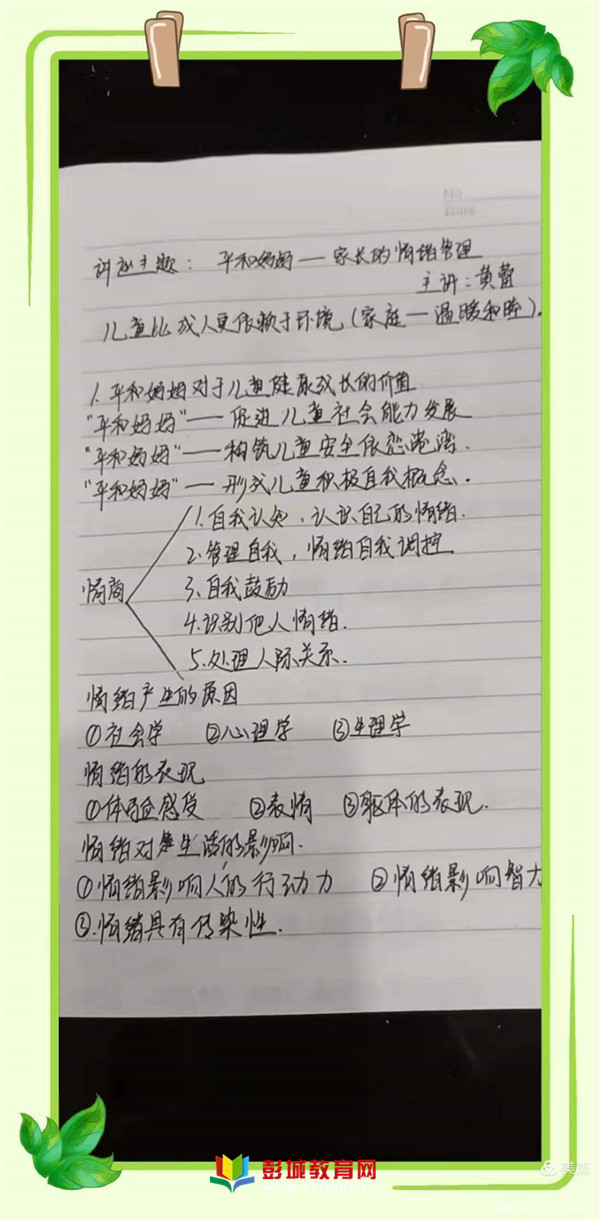 讲座主题：平和妈妈——家长的情绪管理
主讲：黄蕾
儿童比成人更依赖于环境（家庭—温暖和睦）。
1.平和妈妈对于儿童健康成长的价值
“平和妈妈”——促进儿童社会能力发展
“平和妈妈”——构筑儿童安全依恋港湾.
“平和妈妈”——形成儿童积极自我概念.
1.自我认知，认识自己的情绪.
2.管理自我，情绪自我调控
情商
3.自我鼓励
4.识别他人情绪.
5.处理人际关系.
情绪产生的原因
①社会学 ②心理学 ③生理学
情绪的表现
①体验感受 ②表情 ③躯体的表现.
情绪对生活的影响.
①情绪影响人的行动力 ②情绪影响智力
③.情绪具有传染性.
彭城教育网